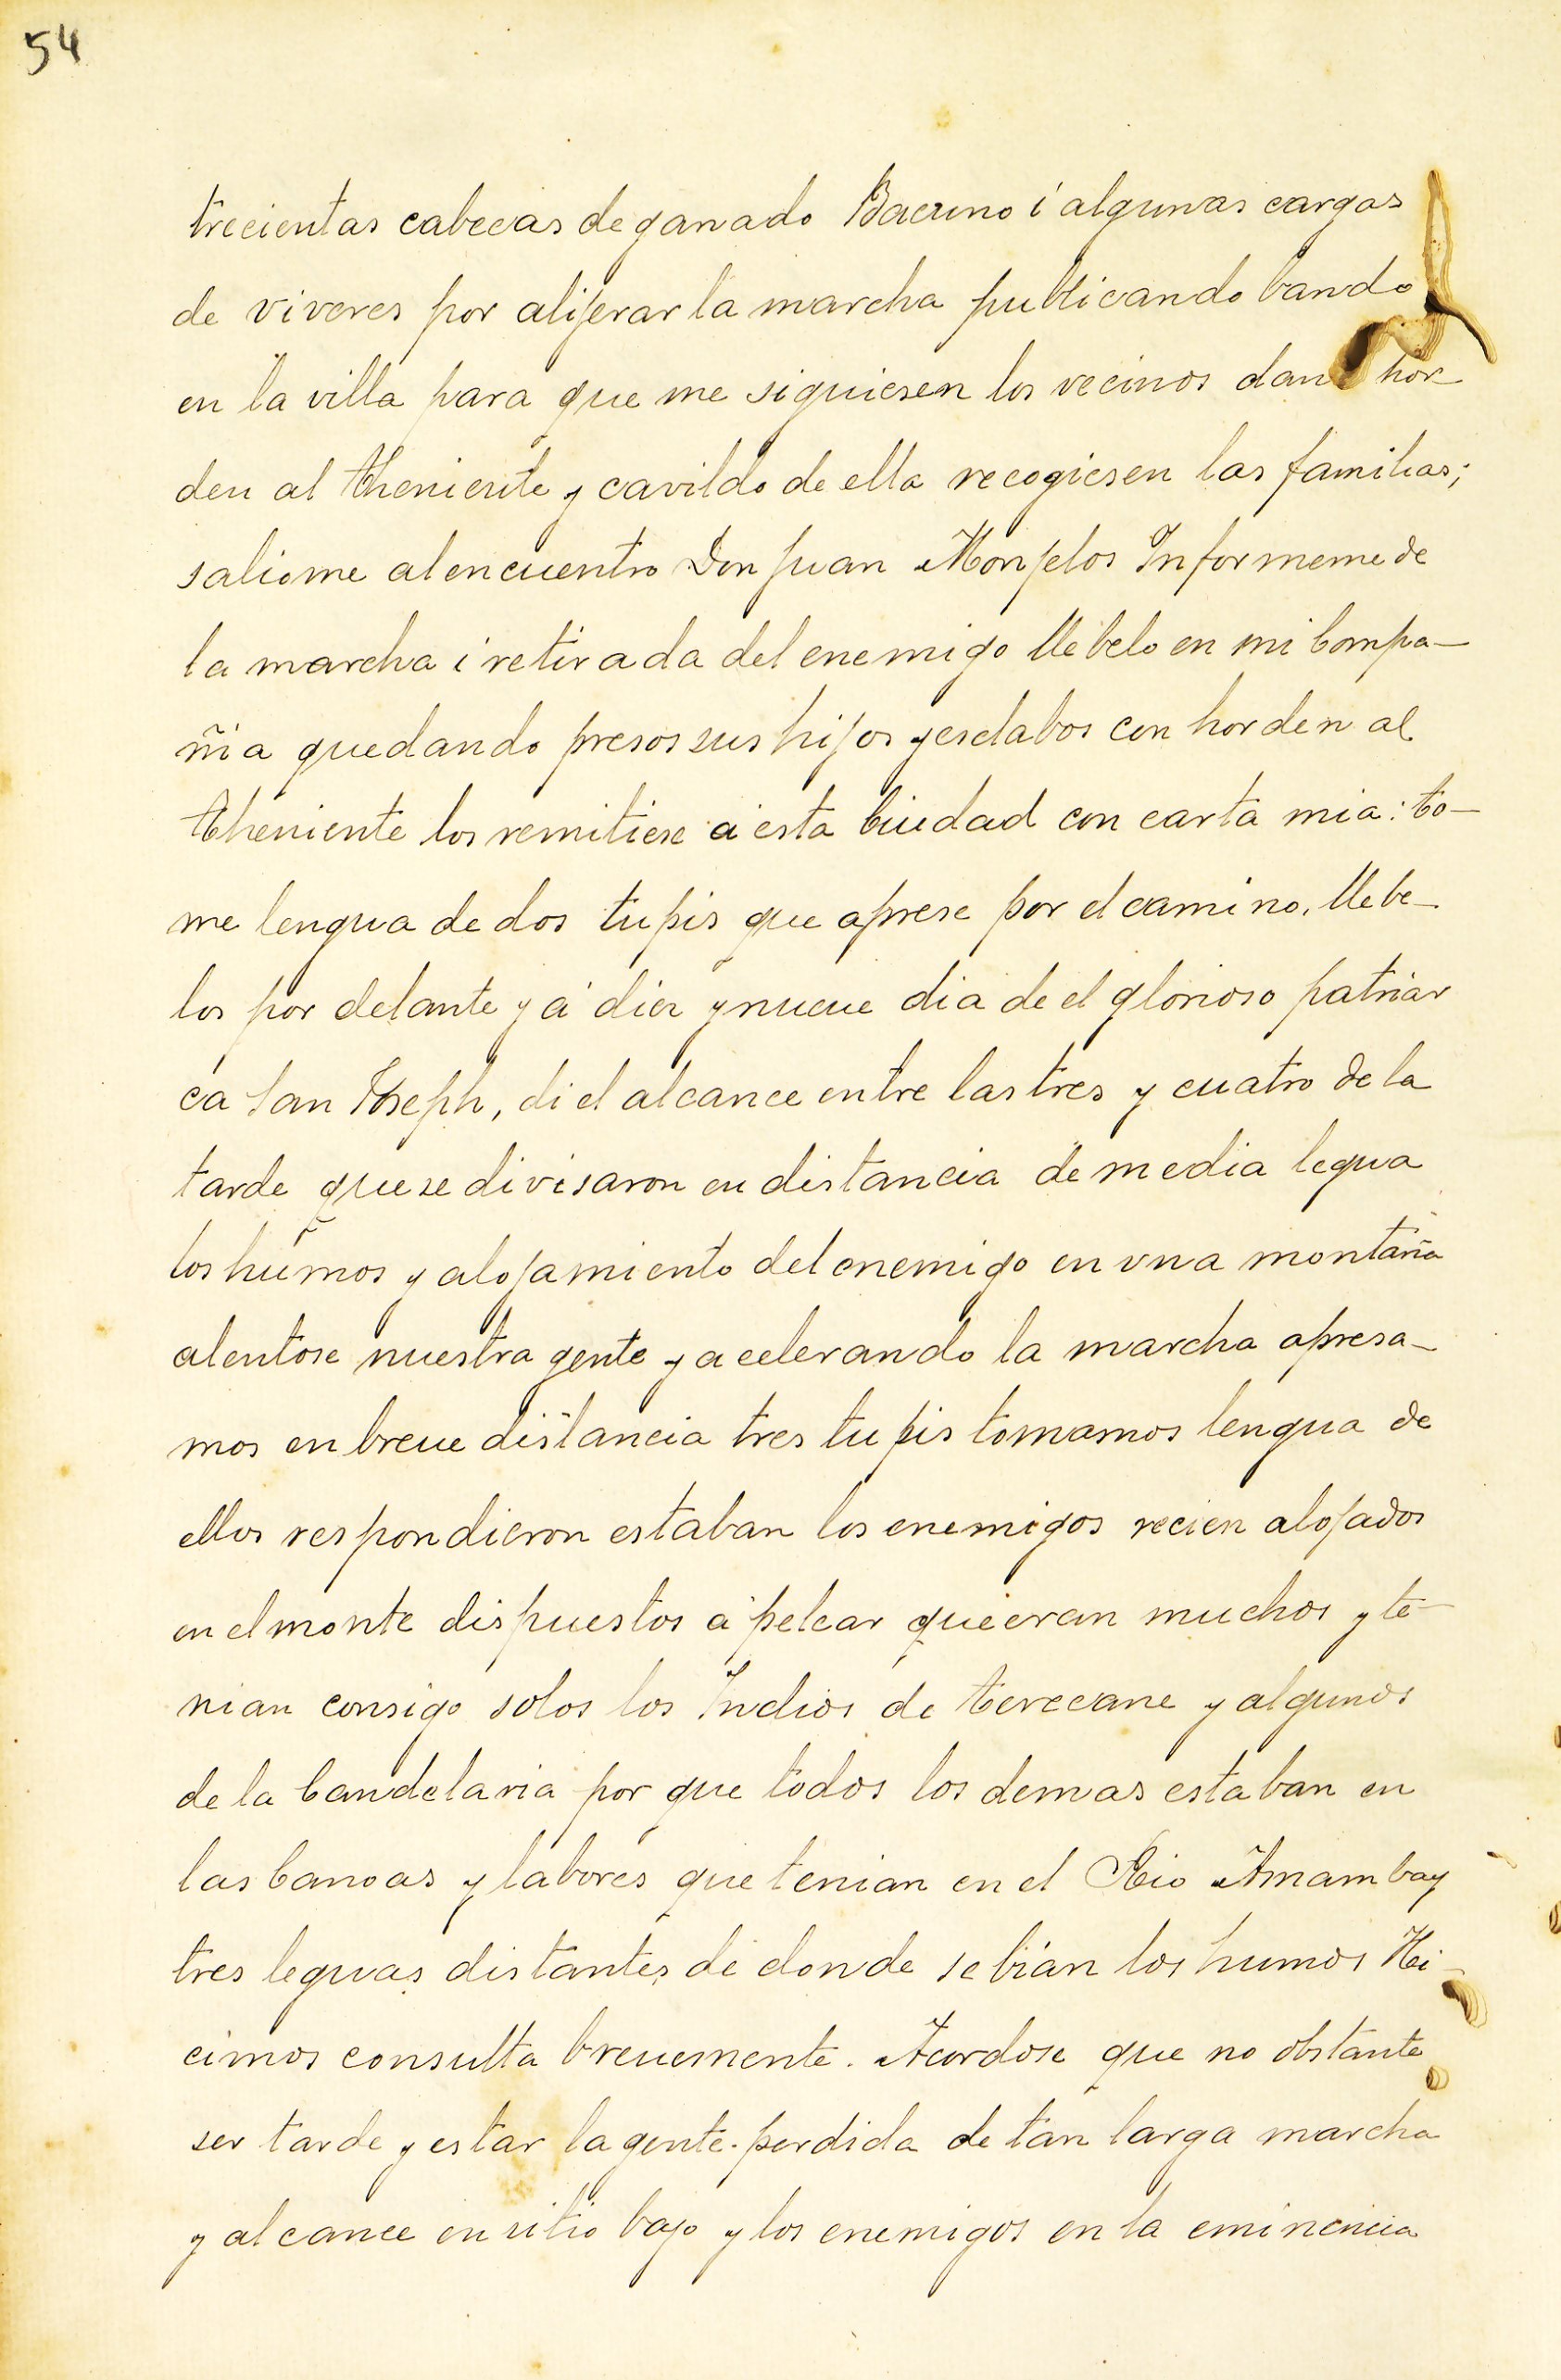 54
trecientas cabecas de ganado Bacuno i algunas cargas
de viveres por alijerar la marcha publicando bando
en la villa para que me siguiesen los vecinos dan hor-
den al theniente y cavildo de ella recogiesen las familias;
saliome al encuentro Don Juan Monjelos Informeme de
la marcha i retirada del enemigo llebelo en mi Compa-
ñia quedando presos sus hijos y esclabos con horden al
theniente los remitiese á esta Ciudad con carta mia: to-
me lengua de dos tupis que aprese por el camino. llebe-
los por delante y á diez y nueue dia de el glorioso patriar
ca San Joseph, di el alcance entre las tres y cuatro de la
tarde que se divisaron en distancia de media legua
los humos y alojamiento del enemigo en vna montaña
alentose nuestra gente y acelerando la marcha apresa-
mos en breue distancia tres tupis tomamos lengua de
ellos respondieron estaban los enemigos recien alojados
en el monte dispuestos á pelear que eran muchos y te-
nian consigo solos los Indios de terecane y algunos
de la Candelaria por que todos los demas estaban en
las Canoas y labores que tenian en el Rio Amambay
tres leguas distantes de donde se bian los humos Hi-
cimos consulta breuemente. Acordose que no obstante
ser tarde y estar la gente perdida de tan larga marcha
y alcance en sitio bajo y los enemigos en la eminencia